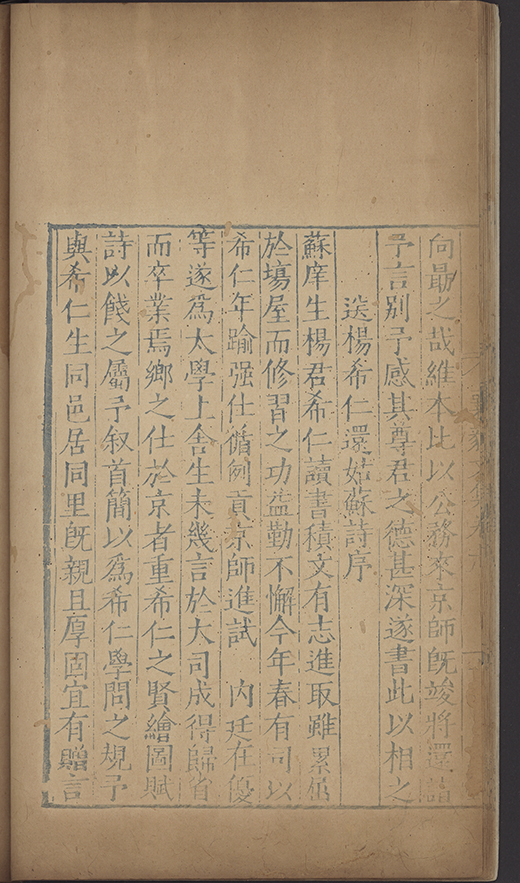 向勗之哉維本比以公務來京師旣竣將還詣
予言别予感其尊君之德甚深遂書此以相之
送楊希仁還姑蘇詩序
蘇庠生楊君希仁讀書積文有志進取雖累屈
於塲屋而修習之功益勤不懈今年春有司以
希仁年踰强仕循例貢京師進試　内廷在優
等遂爲太學上舍生未幾言於大司成得歸省
而卒業焉鄉之仕於京者重希仁之賢繪圖賦
詩以餞之屬予叙首簡以爲希仁學問之規予
與希仁生同邑居同里旣親且厚固宜有贈言